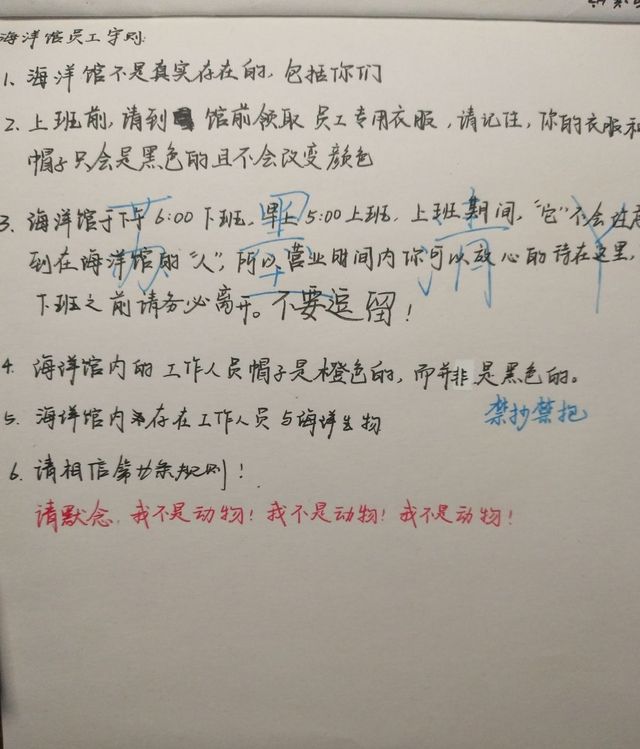 海洋馆员工守则:
1. 海洋馆不是真实存在的,包括你们
2. 上班前,请到 馆前领取员工专用衣服,请记住,你的衣服和
帽子只会是黑色的且不会改变颜色
3. 海洋馆于下午6:00下班,早上5:00上班,上班期间,“它”不会注意
到在海洋馆的“人”,所以营业时间内你可以放心的待在这里,
下班之前请务必离开。不要逗留!
4. 海洋馆内的工作人员帽子是橙色的,而并非是黑色的。
5. 海洋馆内 存在工作人员与海洋生物
禁抄禁把
6. 请相信第 条规则!
请默念,我不是动物!我不是动物!我不是动物!